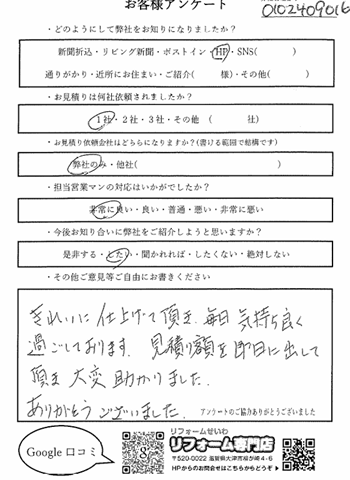 お客様アンケート
0102409016
・どのようにして弊社をお知りになりましたか?
新聞折込・リビング新聞・ポストイン・HP・SNS( )
通りがかり・近所にお住まい・ご紹介( 様)・その他( )
・お見積りは何社依頼されましたか?
1社・2社・3社・その他 ( 社)
・お見積り依頼会社はどちらになりますか?(書ける範囲で結構です)
弊社のみ・他社( )
・担当営業マンの対応はいかがでしたか?
非常に良い・良い・普通・悪い・非常に悪い
・今後お知り合いに弊社をご紹介しようと思いますか?
是非する・したい・聞かれれば・したくない・絶対しない
・その他ご意見等ご自由にお書きください
きれいに仕上げて頂き、毎日気持ち良く
過ごしております。見積り額を即日に出して
頂き大変助かりました。
ありがとうございました。
アンケートのご協力ありがとうございました
Google 口コミ
リフォームせいわ
リフォーム専門店
〒520-0022 滋賀県大津市柳が崎4-6
HPからのお問合せはこちらからどうぞ